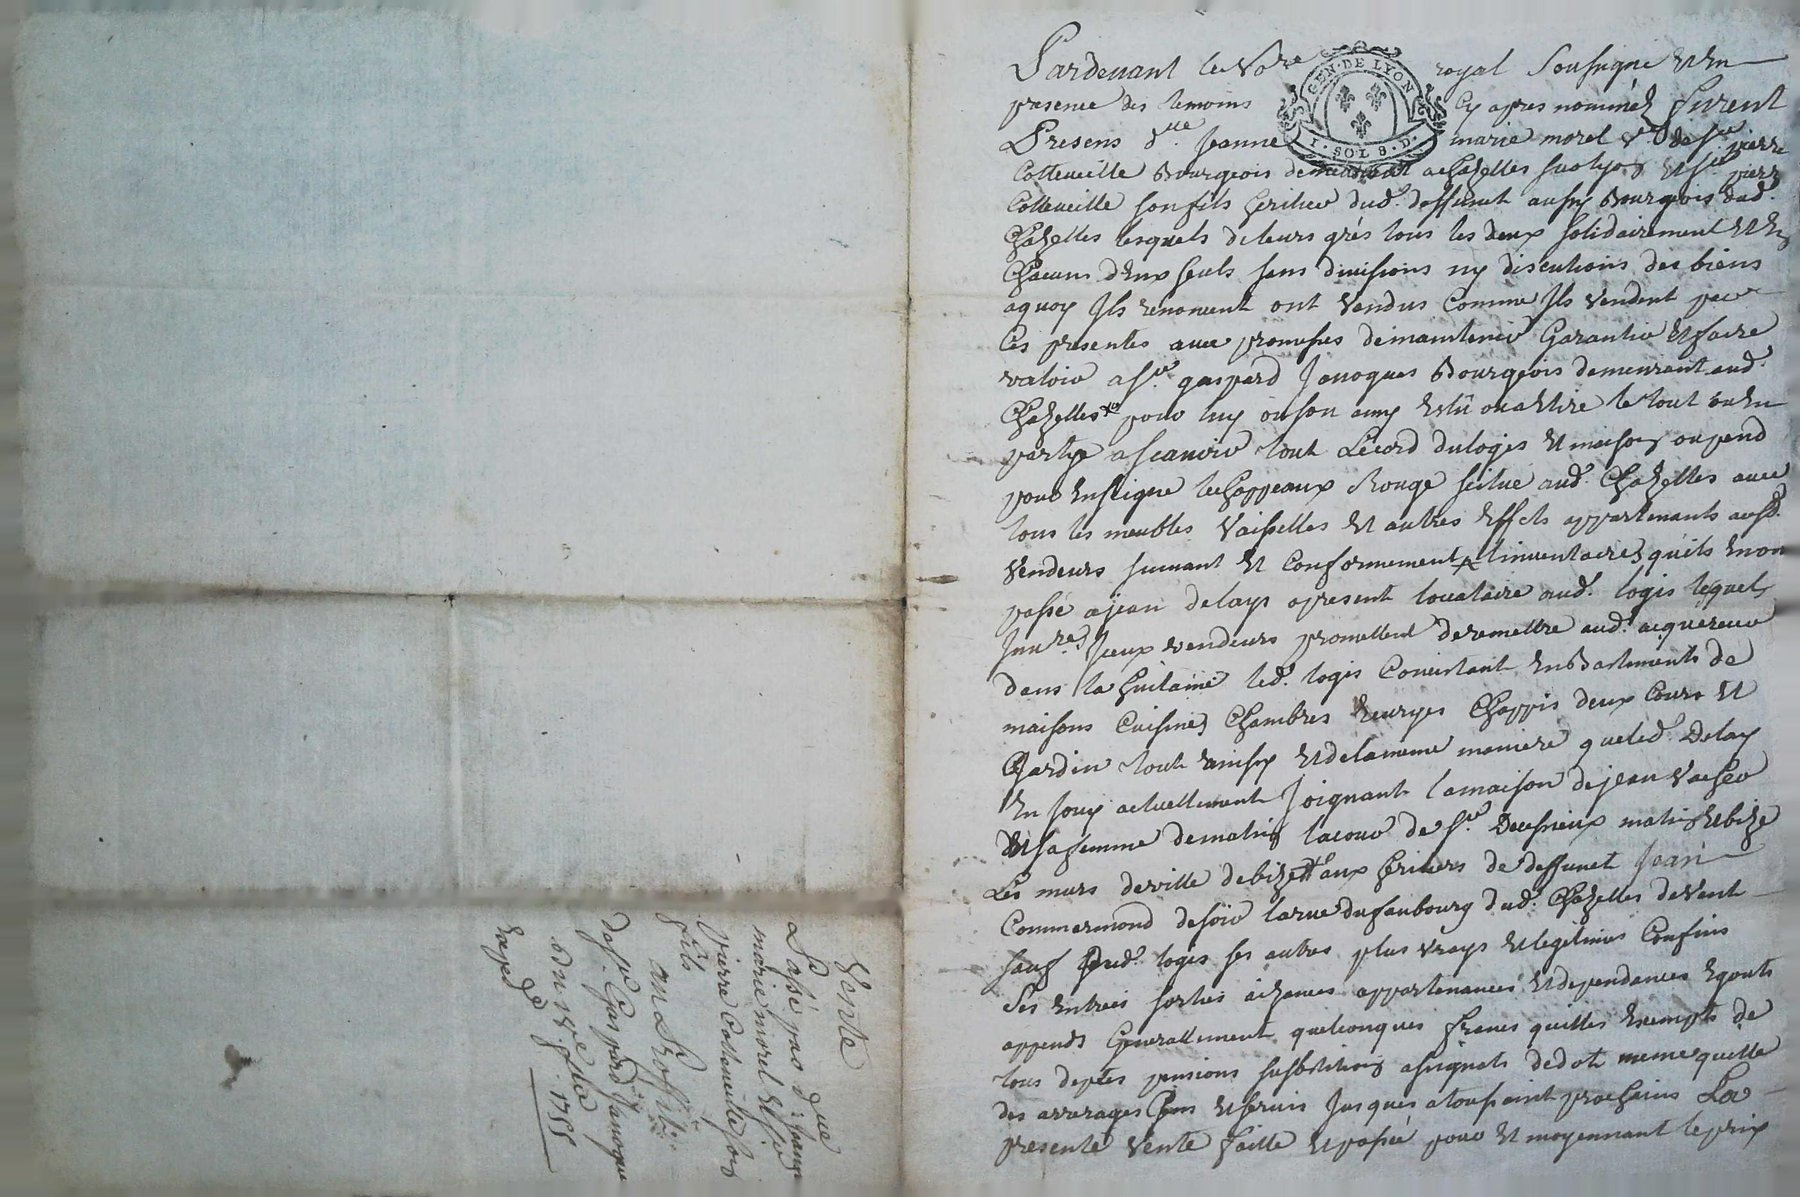 Pardevant le No.re royal Soussigné Et En
presence des temoins Cy apres nommés furent
GEN·DE LYON
I·SOL 8·D·
Presens d.lle Jeanne marie morel v.e de s.r pierre
Cotteveille Bourgeois demeurant a Chazelles Et s.r pierre
Cotteveille son fils heritier dud. deffunt aussy Bourgeois dud.
Chazelles lesquels de leurs grés tous les deux solidairement Et En
Chacun dEux seuls sans divisions ny discutions des biens
aquoy Ils renoncent ont Vendus Comme Ils Vendent par
Ces presentes avec promesses de maintenir Garantir Et faire
valoir a s.r gaspard Janoques Bourgeois demeurant aud.
Chazelles pour luy ou son amy Eslû ou a Elire le tout ou En
partye a scavoir tout Lecord du logis Et maison ou pend
pour Enseigne le Chappeaux Rouge scitué aud. Chazelles avec
tous les meubles Vaisselles Et autres Effets appartenants ausd.
Vendeurs suivant Et Conformement a linventaire quils En on
passé a jean delays apresent locataire aud. logis lequel
Inv.re Iceux vendeurs promettent de remettre aud. acquereur
dans la huitaine led. logis Consistant En Bastiments de
maisons Cuisines Chambres Ecuryes Chappis deux Cours Et
Jardin tout ainsy Et de la meme maniere que led. Delay
En jouy actuellement Joignant la maison de jean Vacher
Et sa femme de matin la cour de s.r matin Et bize
Les murs de ville de bize aux heritiers de deffunct Jean
Commarmond de soir la rue du faubourg dud. Chazelles de Vent
sauf dud. logis ses autres plus vrays Et legitimes Confins
Ses Entrées sorties aizances appartenances Et dependances Egouts
appends Generallement quelconques francs quittes Exempts de
tous deptes pensions substitutions assignats de dot meme quitte
des arrerages Cens Et servis Jusques a toussaint prochains La
presente Vente faitte Et passée pour Et moyennant le prix
Vente
Passé par d.lle Jeanne
marie morel Et s.r
pierre Cotteveille son
fils
au Proffit
de s.r Gaspard Janoques
du 1755